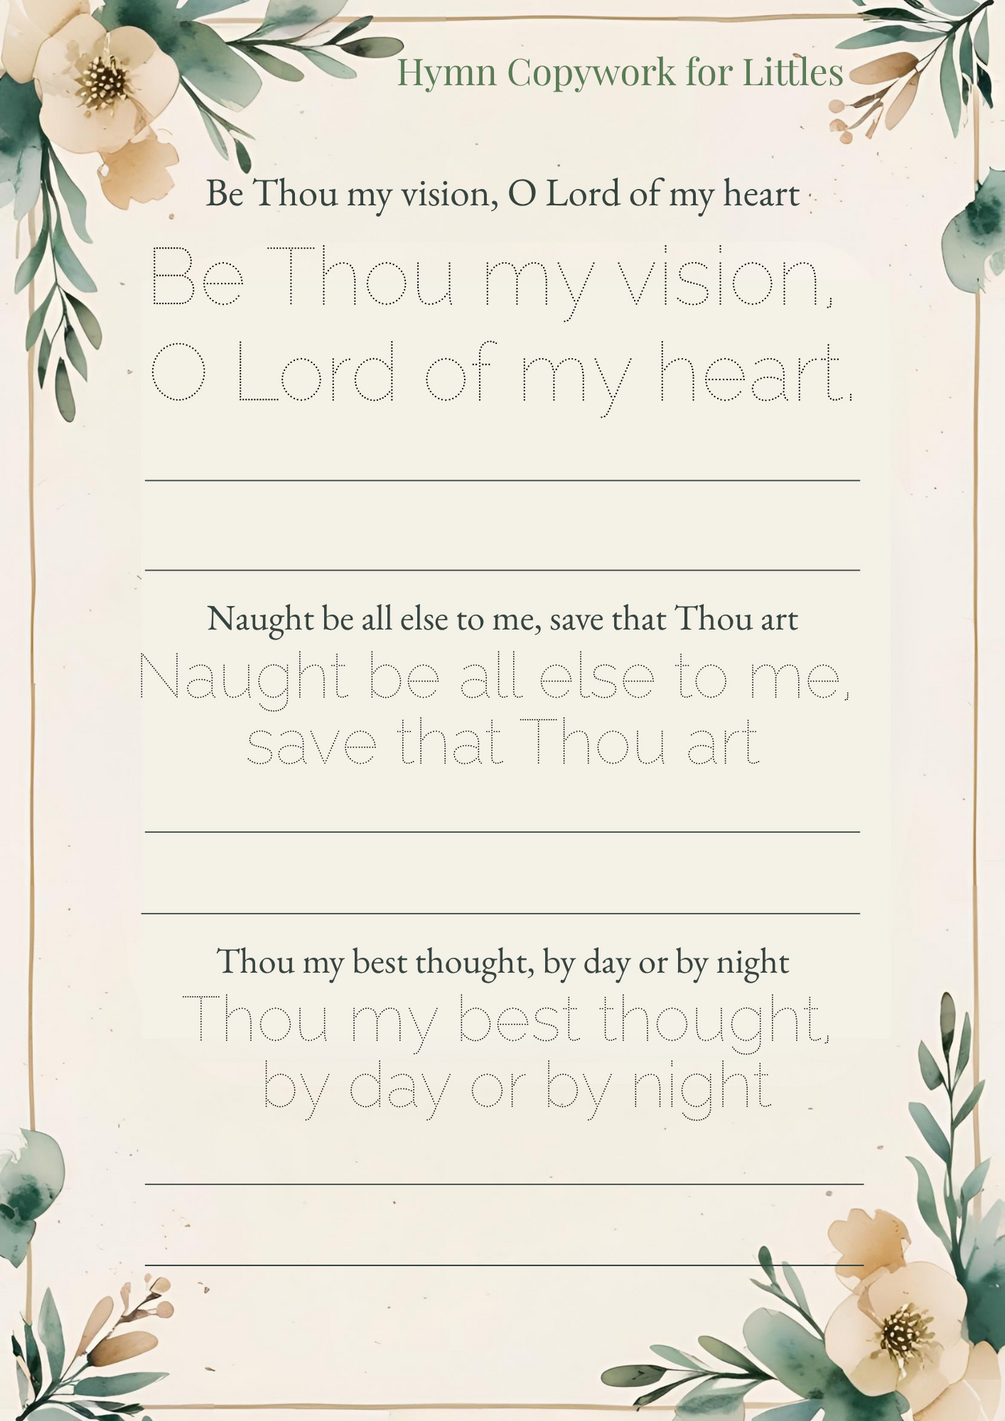 Hymn Copywork for Littles
Be Thou my vision, O Lord of my heart
Be Thou my vision,
O Lord of my heart.
Naught be all else to me, save that Thou art
Naught be all else to me,
save that Thou art
Thou my best thought, by day or by night
Thou my best thought,
by day or by night